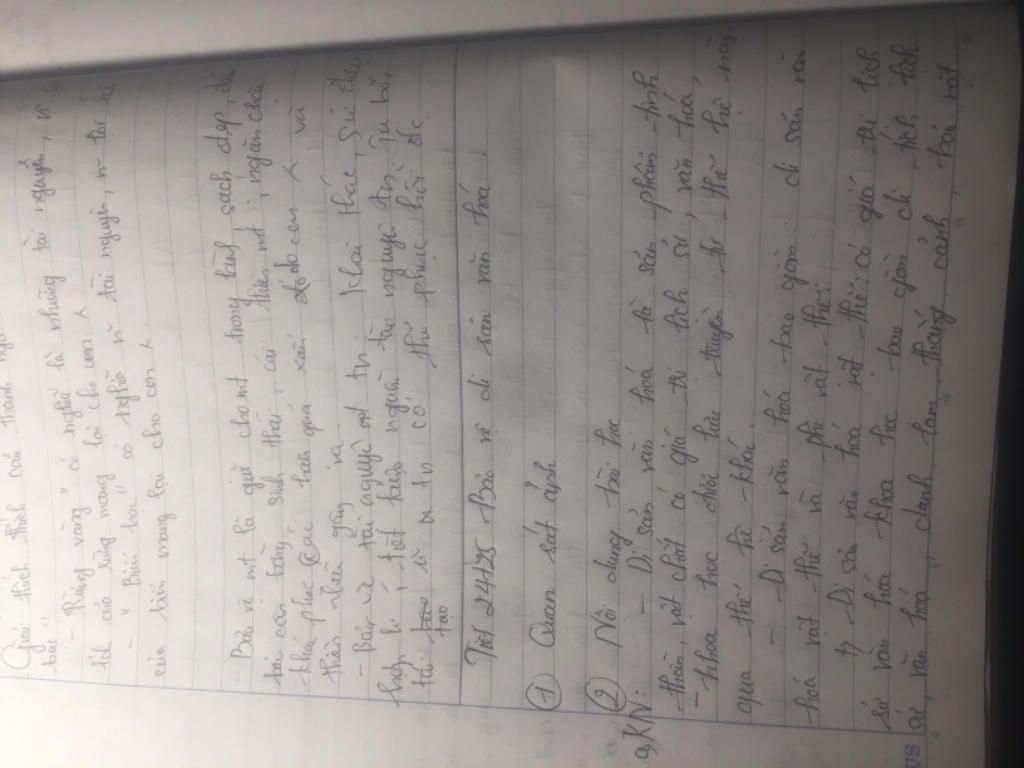 Giải thích thành ngữ
bạc"
- "Rừng vàng" có nghĩa là những tài nguyên, vì
của rừng mang lại cho con λ
- "Biển bạc" có nghĩa vì tài nguyên, vì tài
của biển mang lại cho con λ.
- Bảo vệ mt là giữ cho mt trong lành, sạch đẹp,
cân bằng sinh thái, cải thiện mt; ngăn chặn
khắc phục các hậu quả xấu do con λ và
thiên nhiên gây ra.
- Bảo vệ tài nguyên mt tn: Khai thác, sử dụng
hợp lí, tiết kiệm nguồn tài nguyên tn, tu bổ,
tái tạo tn có thể phục hồi đc.
Tiết 24+25 Bảo vệ di sản văn hoá.
① Quan sát ảnh
② Nội dung bài học
a, KN: - Di sản văn hoá là sản phẩm tinh
thần, vật chất có giá trị lịch sử, văn hoá,
- khoa học được lưu truyền từ thế hệ này
qua thế hệ khác.
- Di sản văn hoá bao gồm: di sản văn
hoá vật thể và phi vật thể:
Di sản văn hoá vật thể: có giá trị lịch
sử văn hoá khoa học bao gồm di tích lịch
sử, văn hoá, danh lam thắng cảnh,